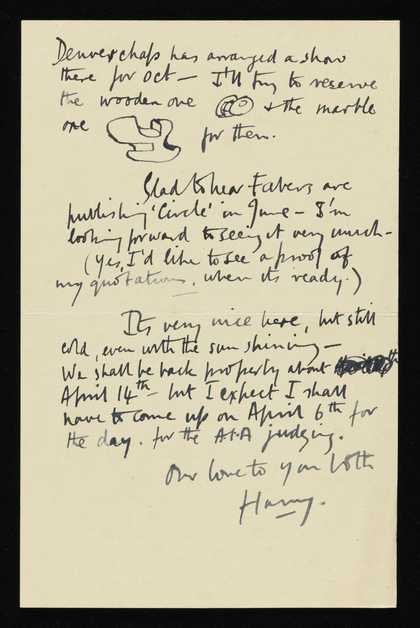 Denver chap has arranged a show
there for Oct — I'll try to reserve
the wooden one & the marble
one for them.
Glad to hear Fabers are
publishing 'Circle' in June – I'm
looking forward to seeing it very much –
(Yes, I'd like to see a proof of
my quotations, when its ready.)
It's very nice here, but still
cold, even with the sun shining –
We shall be back properly about
April 14th – but I expect I shall
have to come up on April 6th for
the day. for the AIA judging.
Our love to you both
Harry.